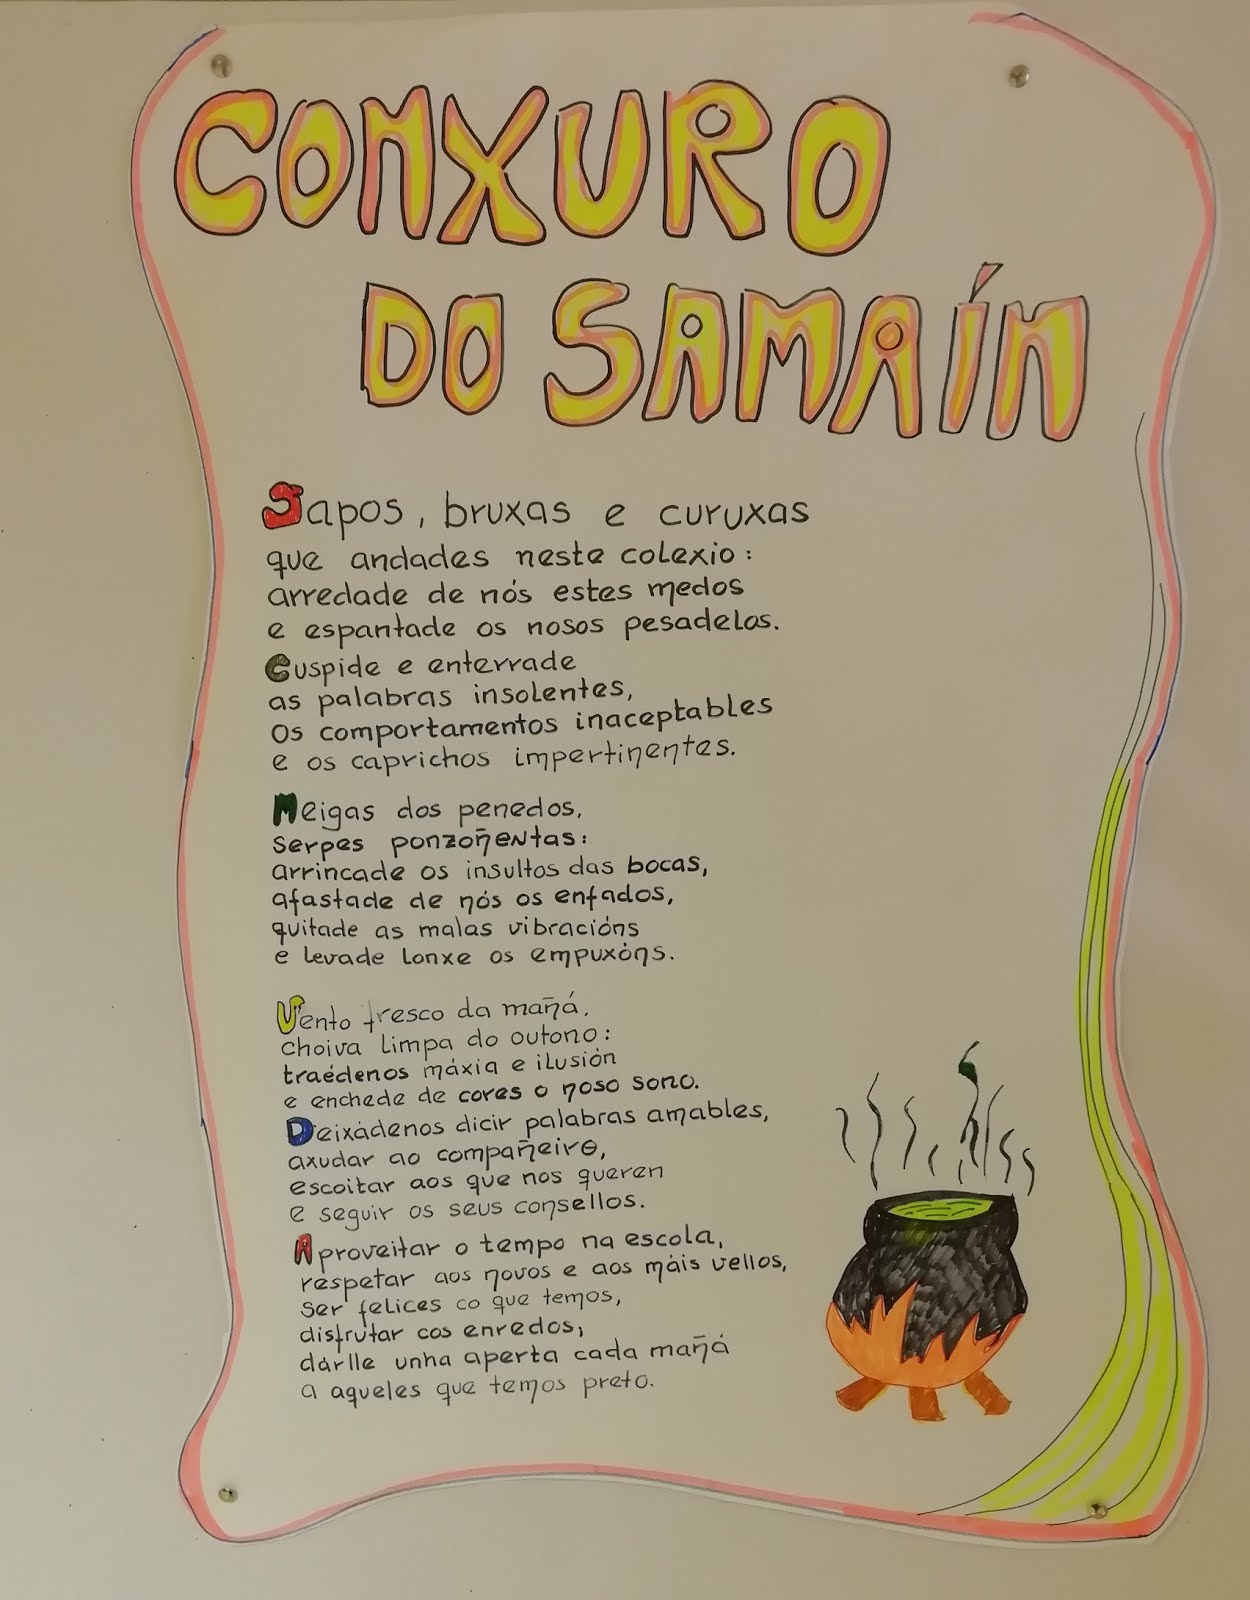 CONXURO
DO SAMAÍN
Sapos, bruxas e curuxas
que andades neste colexio:
arredade de nós estes medos
e espantade os nosos pesadelos.
Cuspide e enterrade
as palabras insolentes,
os comportamentos inaceptables
e os caprichos impertinentes.
Meigas dos penedos,
serpes ponzoñentas:
arrincade os insultos das bocas,
afastade de nós os enfados,
quitade as malas vibracións
e levade lonxe os empuxóns.
Vento fresco da mañá,
choiva limpa do outono:
traédenos máxia e ilusión
e enchede de cores o noso sono.
Deixádenos dicir palabras amables,
axudar ao compañeiro,
escoitar aos que nos queren
e seguir os seus consellos.
Aproveitar o tempo na escola,
respetar aos novos e aos máis vellos,
ser felices co que temos,
disfrutar cos enredos,
dárlle unha aperta cada mañá
a aqueles que temos preto.